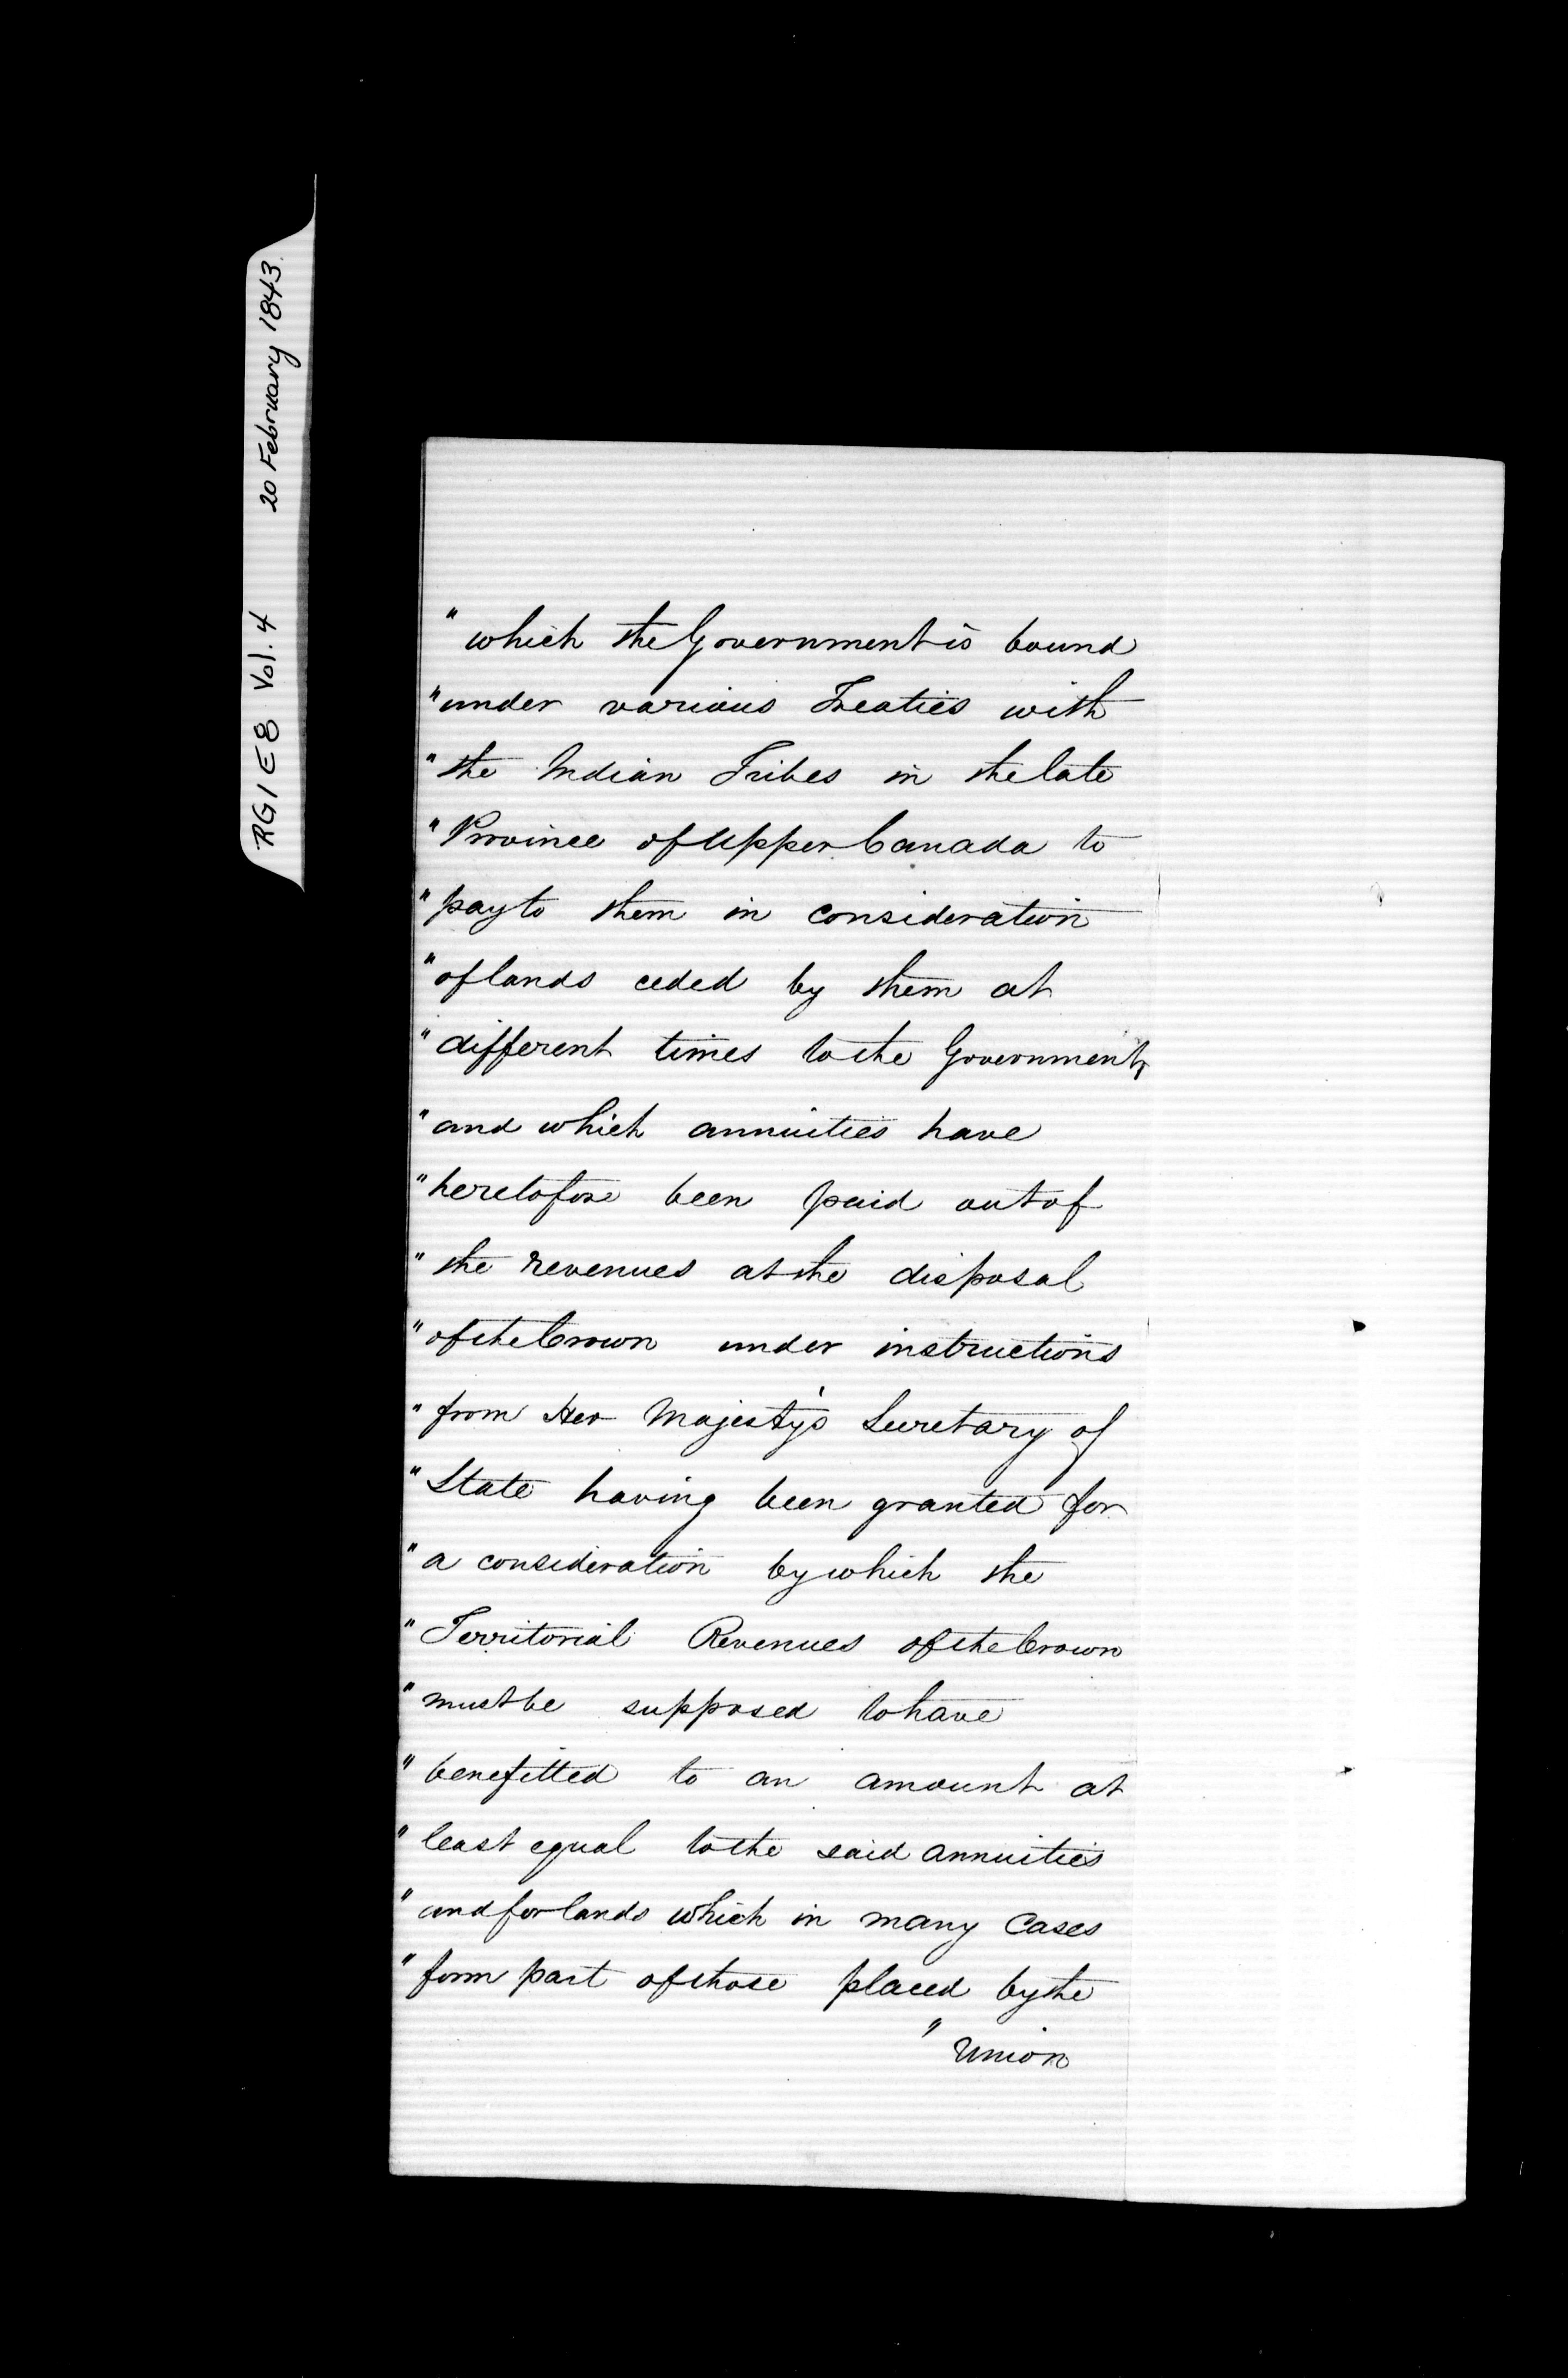 RG1 E8 Vol. 4 20 February 1843.
" which the Government is bound
" under various Treaties with
" the Indian Tribes in the late
" Province of Upper Canada to
" pay to them in consideration
" of lands ceded by them at
" different times to the Government,
" and which annuities have
" heretofore been paid out of
" the revenues at the disposal
" of the Crown under instructions
" from Her Majesty's Secretary of
" State having been granted for
" a consideration by which the
" Territorial Revenues of the Crown
" must be supposed to have
" benefitted to an amount at
" least equal to the said annuities
" and for lands which in many Cases
" form part of those placed by the
" Union